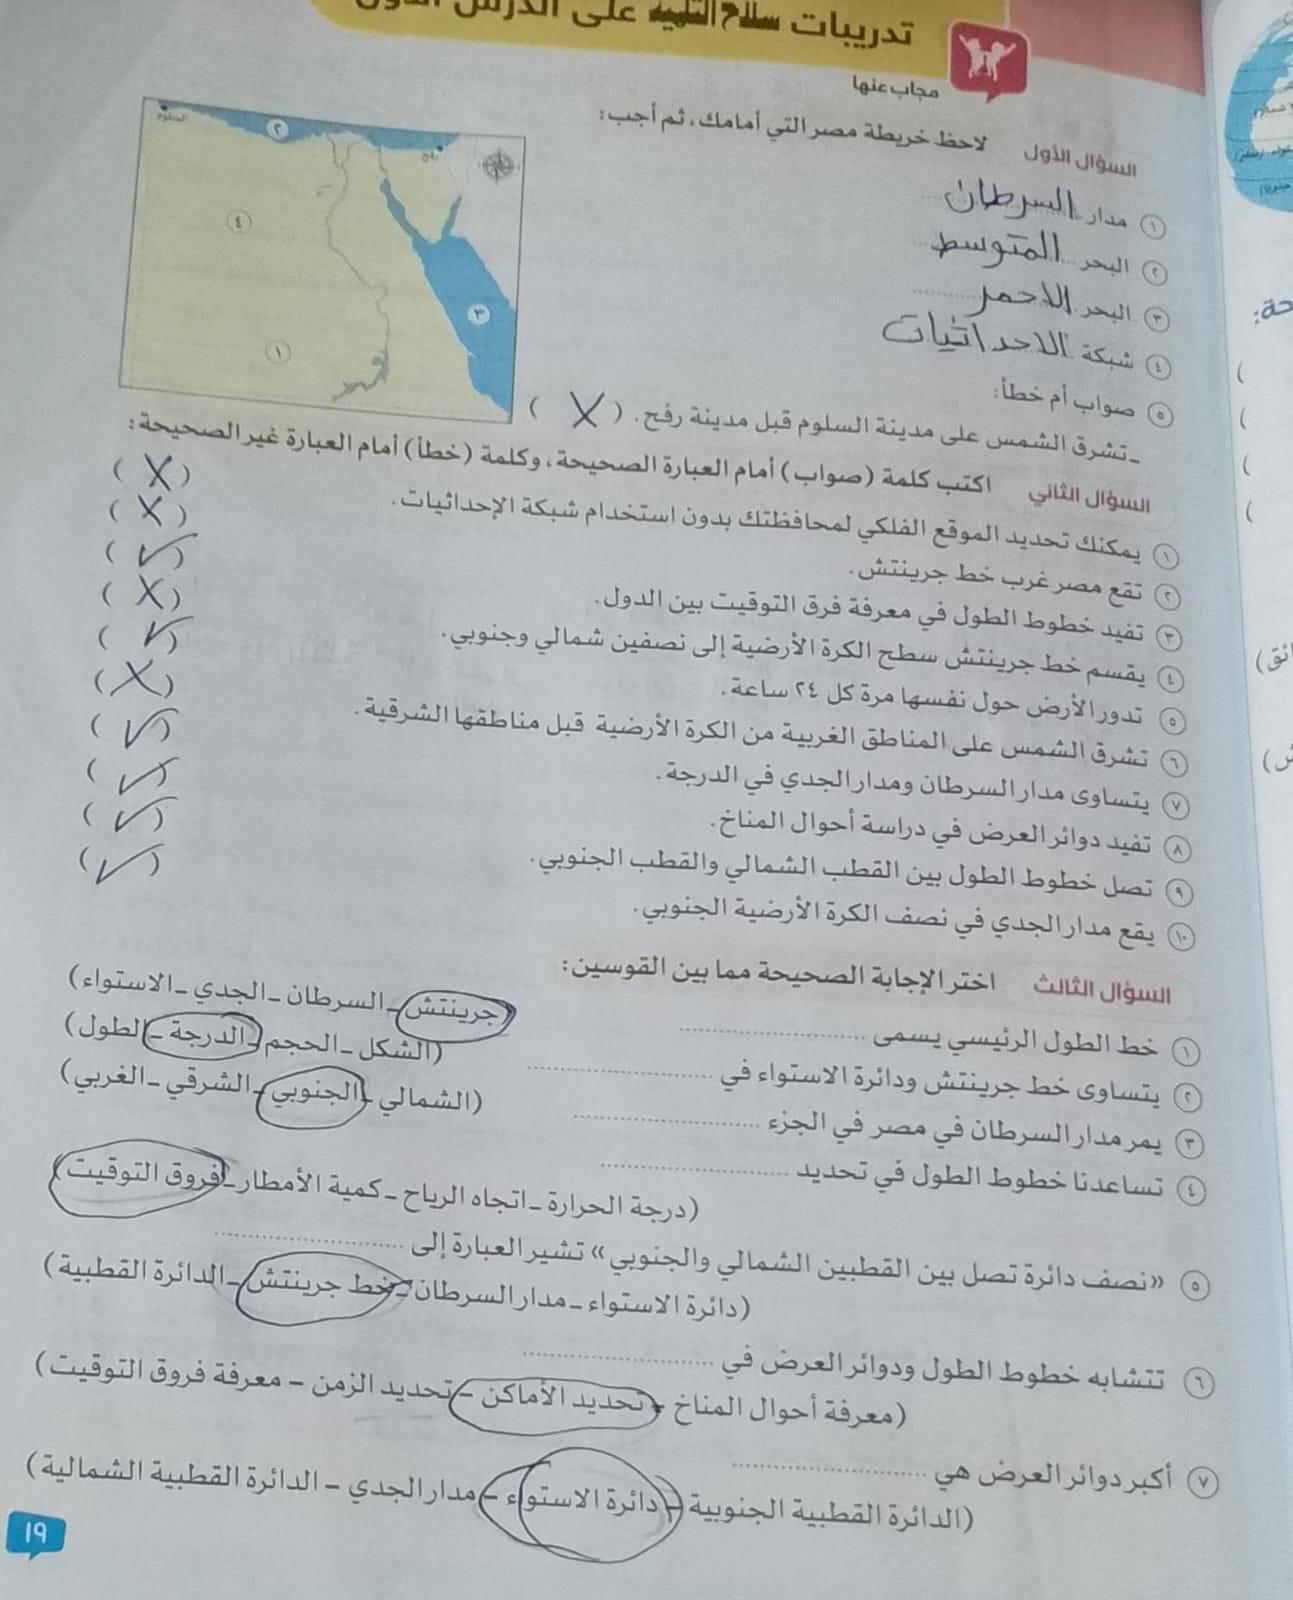 تدريبات سلاح التلميذ على الدرس الأول
مجاب عنها
السؤال الأول لاحظ خريطة مصر التي أمامك، ثم أجب:
السلوم
٢
رفح
٤
٣
١
١ مدار السرطان
٢ البحر المتوسط
٣ البحر الاحمر
٤ شبكة الاحداثيات
٥ صواب أم خطأ:
- تشرق الشمس على مدينة السلوم قبل مدينة رفح. ( X )
السؤال الثاني اكتب كلمة (صواب) أمام العبارة الصحيحة، وكلمة (خطأ) أمام العبارة غير الصحيحة:
١ يمكنك تحديد الموقع الفلكي لمحافظتك بدون استخدام شبكة الإحداثيات. ( X )
٢ تقع مصر غرب خط جرينتش. ( X )
٣ تفيد خطوط الطول في معرفة فرق التوقيت بين الدول. ( ✓ )
٤ يقسم خط جرينتش سطح الكرة الأرضية إلى نصفين شمالي وجنوبي. ( X )
٥ تدور الأرض حول نفسها مرة كل ٢٤ ساعة. ( ✓ )
٦ تشرق الشمس على المناطق الغربية من الكرة الأرضية قبل مناطقها الشرقية. ( X )
٧ يتساوى مدار السرطان ومدار الجدي في الدرجة. ( ✓ )
٨ تفيد دوائر العرض في دراسة أحوال المناخ. ( ✓ )
٩ تصل خطوط الطول بين القطب الشمالي والقطب الجنوبي. ( ✓ )
١٠ يقع مدار الجدي في نصف الكرة الأرضية الجنوبي. ( ✓ )
السؤال الثالث اختر الإجابة الصحيحة مما بين القوسين:
١ خط الطول الرئيسي يسمى .................... (جرينتش - السرطان - الجدي - الاستواء)
٢ يتساوى خط جرينتش ودائرة الاستواء في .................... (الشكل - الحجم - الدرجة - الطول)
٣ يمر مدار السرطان في مصر في الجزء .................... (الشمالي - الجنوبي - الشرقي - الغربي)
٤ تساعدنا خطوط الطول في تحديد ....................
(درجة الحرارة - اتجاه الرياح - كمية الأمطار - فروق التوقيت)
٥ «نصف دائرة تصل بين القطبين الشمالي والجنوبي» تشير العبارة إلى ....................
(دائرة الاستواء - مدار السرطان - خط جرينتش - الدائرة القطبية)
٦ تتشابه خطوط الطول ودوائر العرض في ....................
(معرفة أحوال المناخ - تحديد الأماكن - تحديد الزمن - معرفة فروق التوقيت)
٧ أكبر دوائر العرض هي ....................
(الدائرة القطبية الجنوبية - دائرة الاستواء - مدار الجدي - الدائرة القطبية الشمالية)
١٩